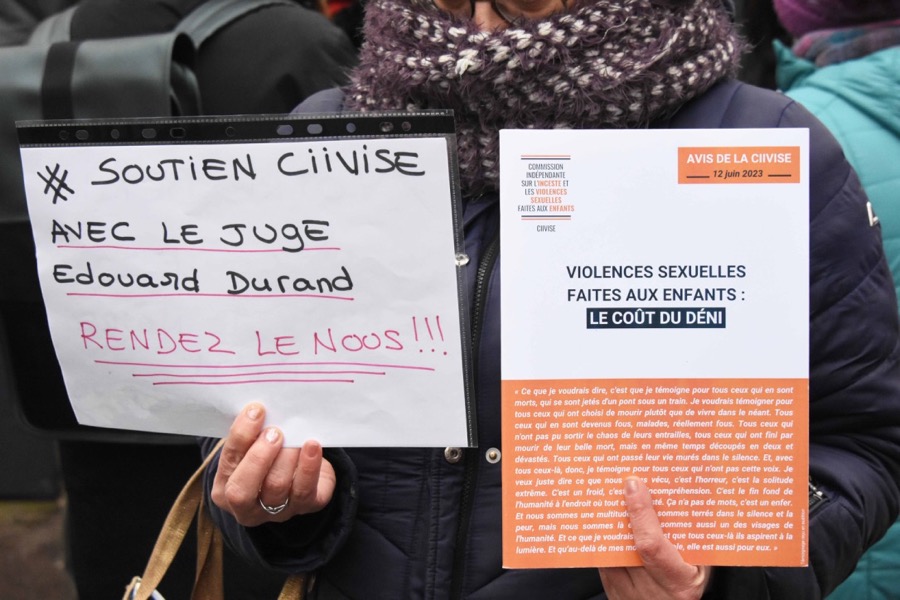 # SOUTIEN CIIVISE
AVEC LE JUGE
Edouard Durand
RENDEZ LE NOUS!!!
COMMISSION
INDÉPENDANTE
SUR L'INCESTE ET
LES VIOLENCES
SEXUELLES
FAITES AUX ENFANTS
CIIVISE
AVIS DE LA CIIVISE
12 juin 2023
VIOLENCES SEXUELLES
FAITES AUX ENFANTS :
LE COÛT DU DÉNI
« Ce que je voudrais dire, c'est que je témoigne pour tous ceux qui en sont
morts, qui se sont jetés d'un pont sous un train. Je voudrais témoigner pour
tous ceux qui ont choisi de mourir plutôt que de vivre dans le néant. Tous
ceux qui en sont devenus fous, malades, réellement fous. Tous ceux qui
n'ont pas pu sortir le chaos de leurs entrailles, tous ceux qui ont fini par
mourir de leur belle mort, mais en même temps découpés en deux et
dévastés. Tous ceux qui ont passé leur vie murés dans le silence. Et, avec
tous ceux-là, donc, je témoigne pour tous ceux qui n'ont pas cette voix. Je
veux juste dire ce que nous vécu, c'est l'horreur, c'est la solitude
extrême. C'est un froid, c'es compréhension. C'est le fin fond de
l'humanité à l'endroit où tout e té. Ça n'a pas de mots, c'est un enfer.
Et nous sommes une multitude sommes terrés dans le silence et la
peur, mais nous sommes là sommes aussi un des visages de
l'humanité. Et ce que je voudrais que tous ceux-là ils aspirent à la
lumière. Et qu'au-delà de mes mo le, elle est aussi pour eux. »